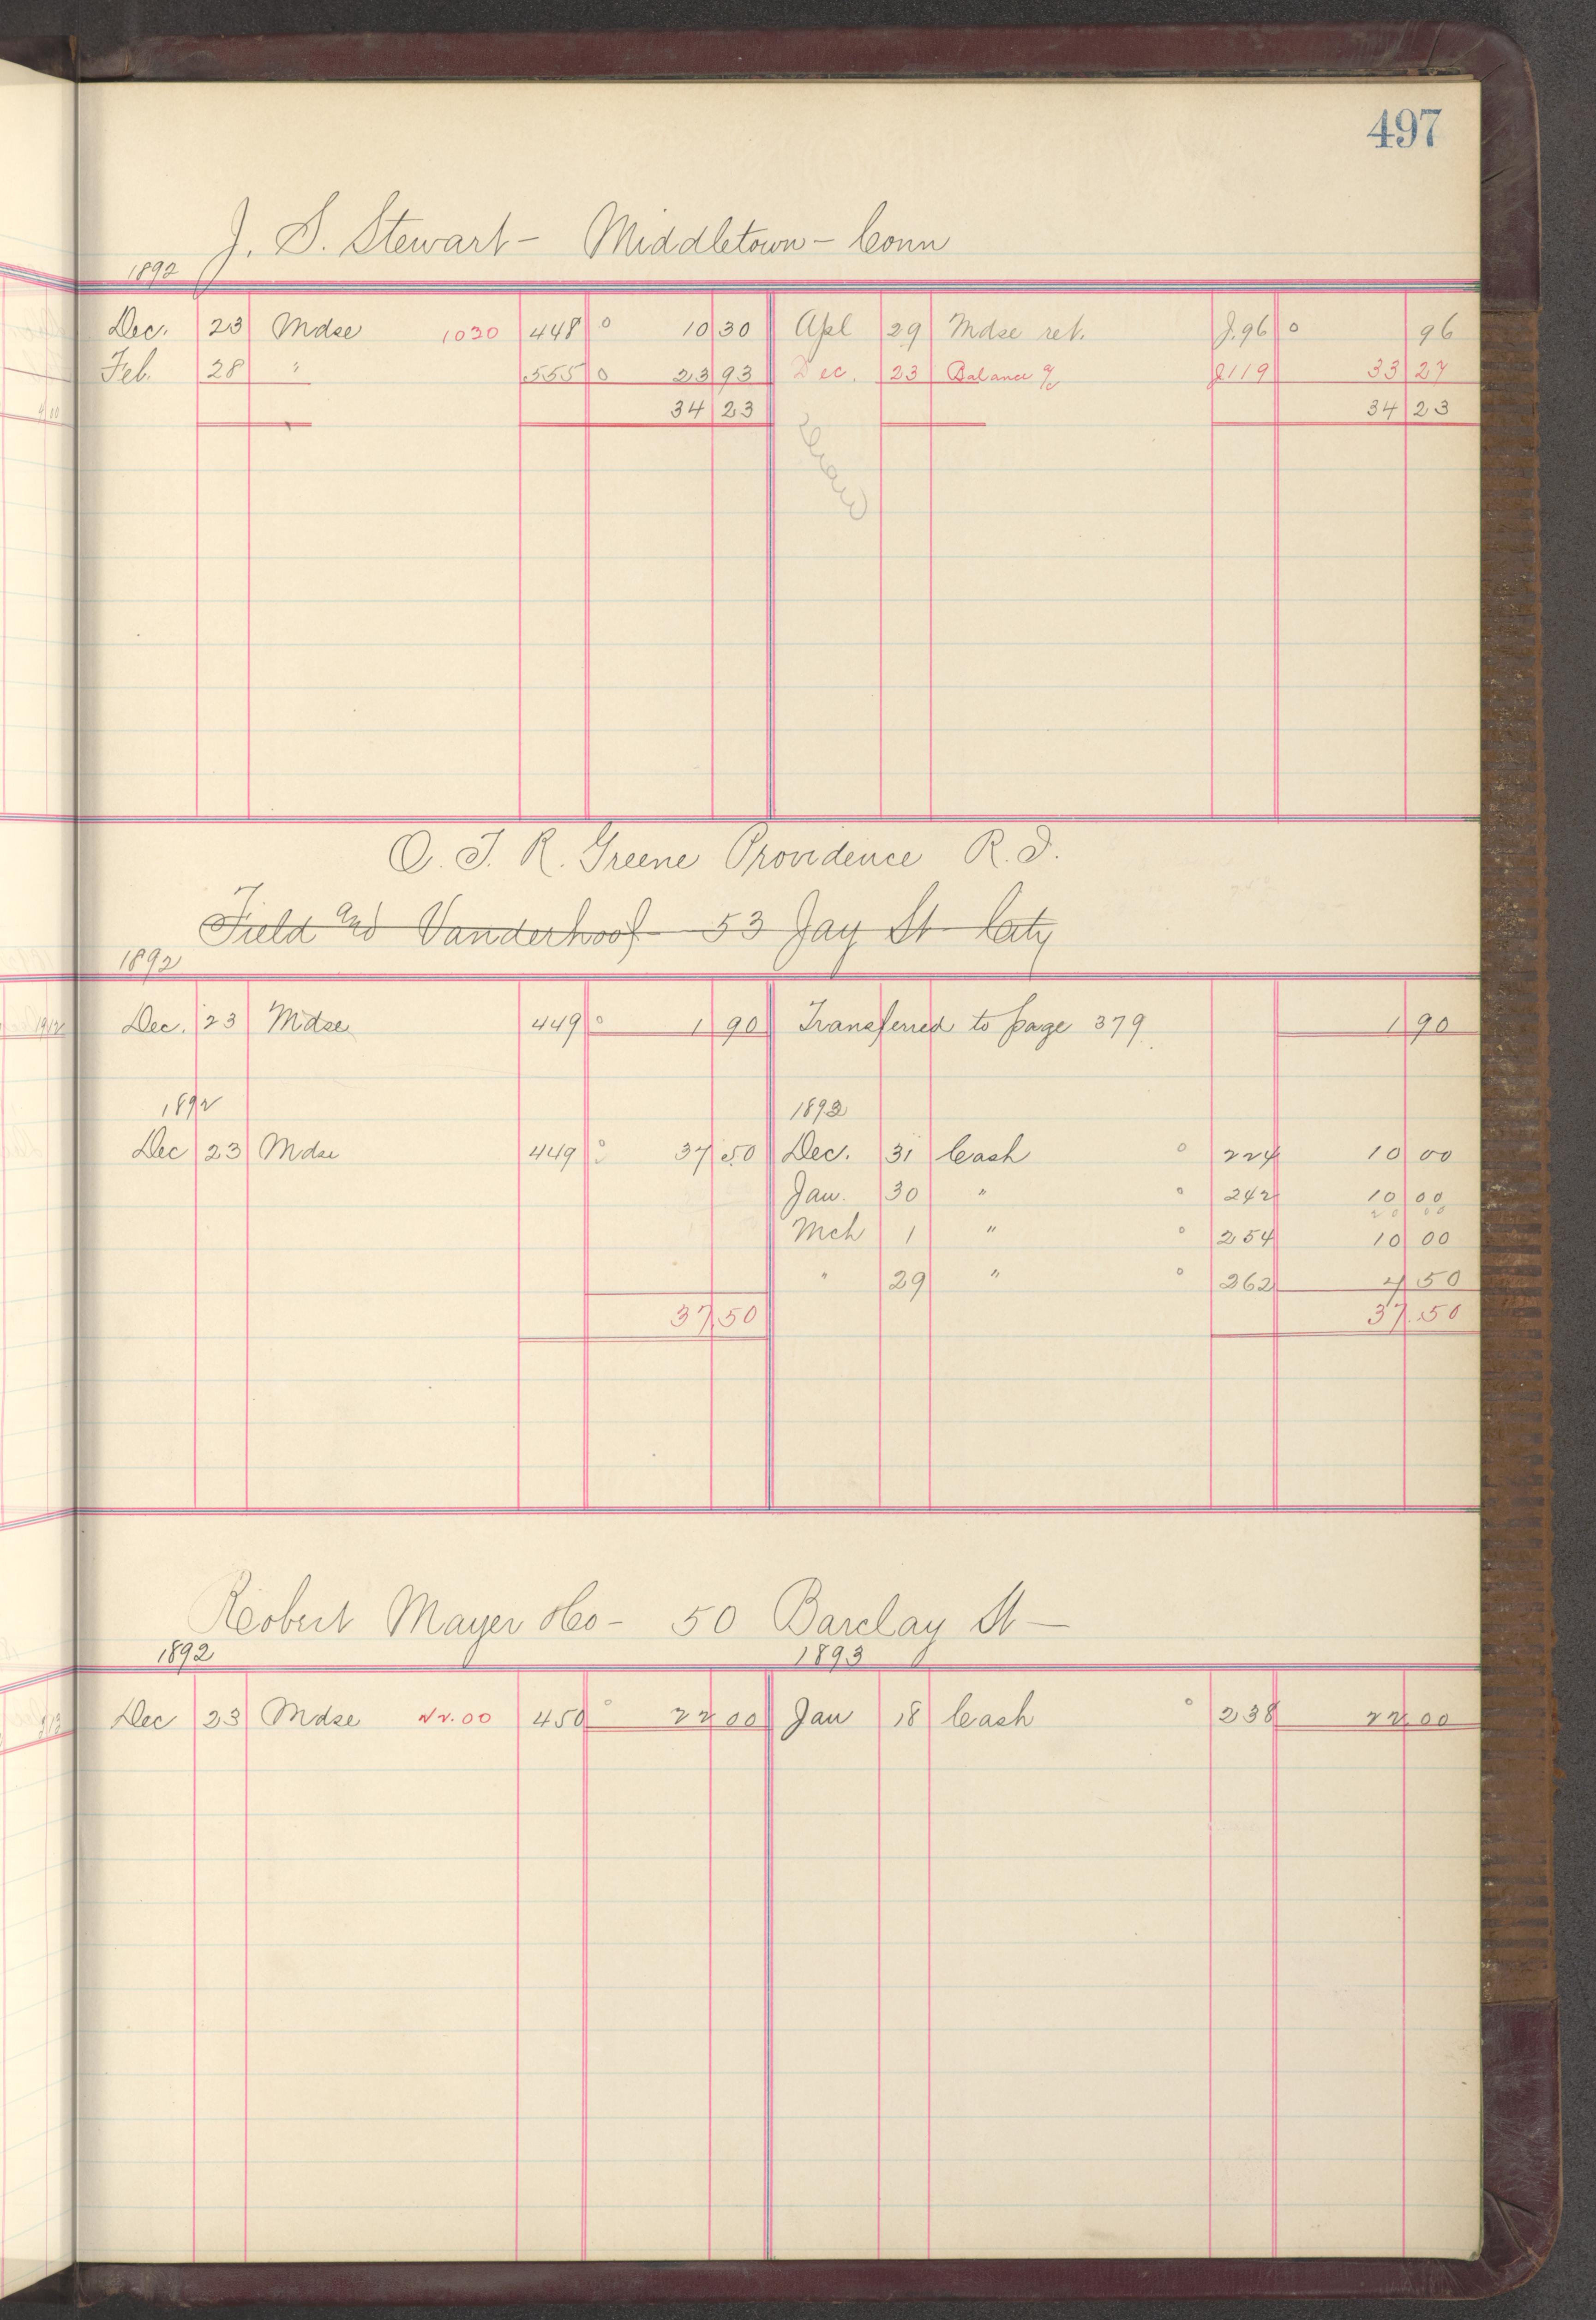 497
J. S. Stewart - Middletown - Conn
1892
Dec. 23 Mdse 1030 448 o 10 30 Apl 29 Mdse ret. J.96 o 96
Feb. 28 " 555 o 23 93 Dec. 23 Balance a/c J119 33 27
34 23 34 23
O. T. R. Greene Providence R. I.
Field and Vanderhoof - 53 Jay St - City
1892
Dec. 23 Mdse 449 o 1 90 Transferred to page 379 1 90
1892 1892
Dec 23 Mdse 449 o 37 50 Dec. 31 Cash o 224 10 00
Jan. 30 " o 242 10 00
20 00
Mch 1 " o 254 10 00
" 29 " o 262 4 50
37.50 37.50
Robert Mayer &Co - 50 Barclay St -
1892 1893
Dec 23 Mdse 22.00 450 o 22 00 Jan 18 Cash o 238 22 00